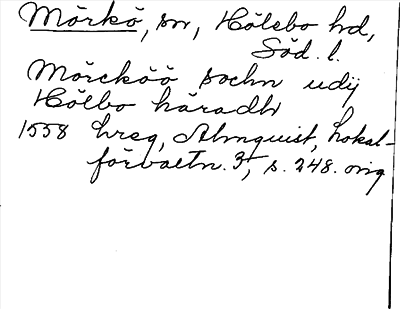 Mörkö, sn, Hölebo hd,
Söd. l.
Mörcköö sochn udij
Hölbo häradh
1558 hreg, Almquist, Lokal-
förvaltn. 3, s. 248. orig